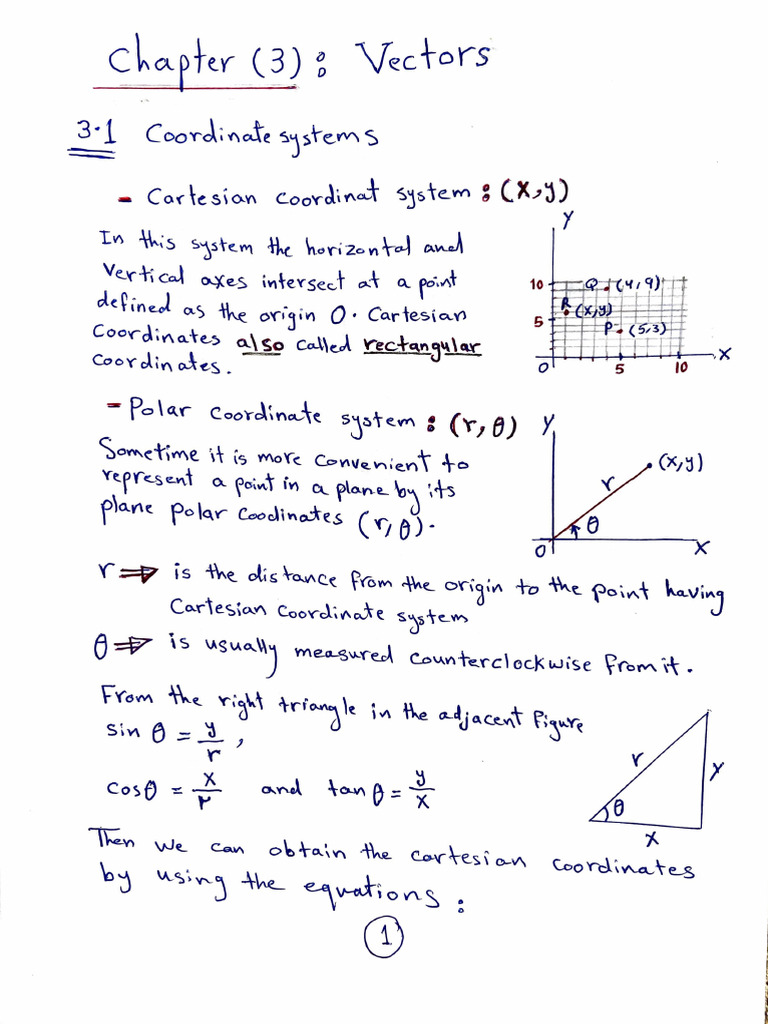 Chapter (3): Vectors
3.1 Coordinate systems
- Cartesian coordinat system : (x,y)
In this system the horizontal and
vertical axes intersect at a point
defined as the origin O. Cartesian
Coordinates also called rectangular
coordinates.
y
10
5
Q (4,9)
R (x,y)
P (5,3)
0 5 10 x
- Polar coordinate system : (r, θ)
Sometime it is more convenient to
represent a point in a plane by its
plane polar coodinates (r, θ).
y
(x,y)
r
θ
0 x
r ⇒ is the distance from the origin to the point having
Cartesian coordinate system
θ ⇒ is usually measured counterclockwise from it.
From the right triangle in the adjacent figure
sin θ = y/r ,
cosθ = x/r and tan θ = y/x
r
y
θ
x
Then we can obtain the cartesian coordinates
by using the equations :
1